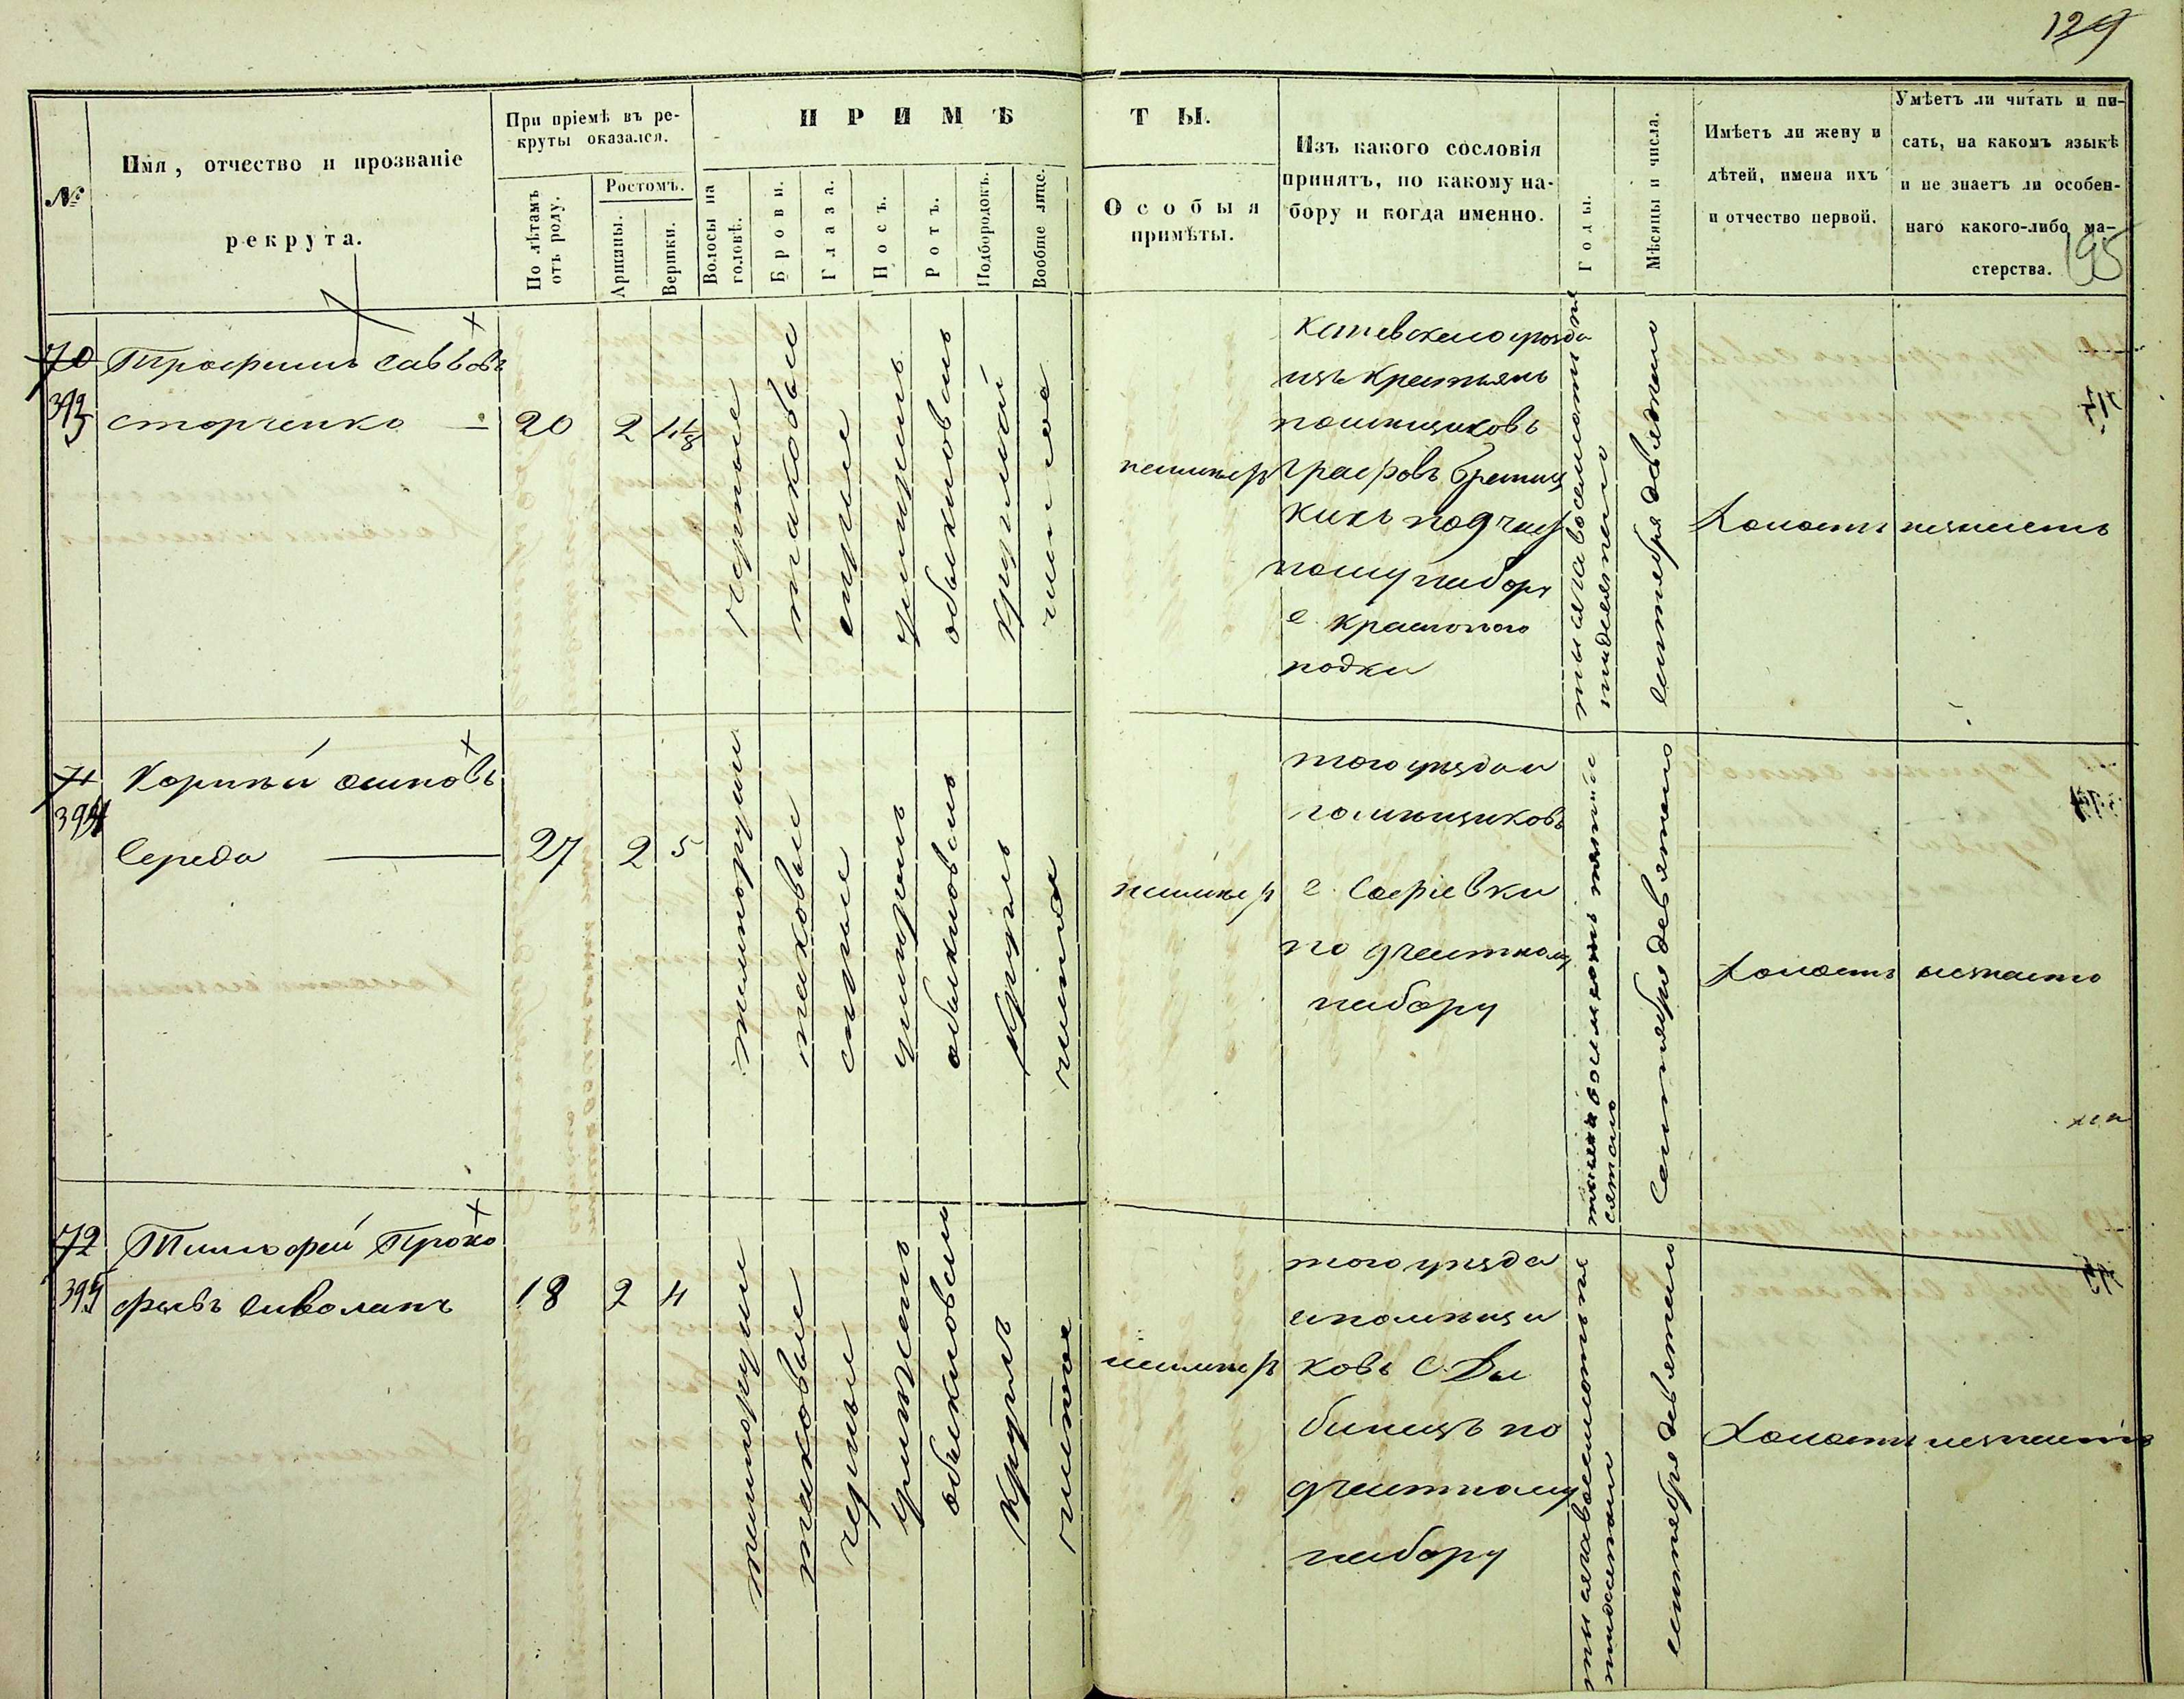 129
№
Имя, отчество и прозваніе
рекрута.
При пріемѣ въ ре-
круты оказался.
По лѣтамъ
отъ роду.
Ростомъ.
Аршины.
Вершки.
ПРИМѢ
ТЫ.
Волосы на
головѣ.
Брови.
Глаза.
Носъ.
Ротъ.
Подбородокъ.
Вообще лице.
Особыя
примѣты.
Изъ какого сословія
принятъ, по какому на-
бору и когда именно.
Годы.
Мѣсяцы и числа.
Имѣетъ ли жену и
дѣтей, имена ихъ
и отчество первой.
Умѣетъ ли читать и пи-
сать, на какомъ языкѣ
и не знаетъ ли особен-
наго какого-либо ма-
стерства.
195
70
393
Трофимъ Саввовъ
Сторченко
20
2
4 1/8
черные
таковыи
сѣрые
умѣренъ
обыкновенъ
круглый
чистое
неимѣетъ
Каневскаго уѣзда
изъ крестьянъ
помѣщиковъ
Графовъ Браниц
кихъ по 9 част
ному набору
с
тысяча восемьсотъ пя
тидесятаго
сентября девятаго
Холостъ
незнаетъ
71
394
Корнѣй Осиповъ
Середа
27
2
5
темнорусыи
таковыи
сѣрые
умѣренъ
обыкновенъ
круглъ
чистое
неимѣетъ
того уѣзда и
помѣщиковъ
с. Софіевки
по 9 частному
набору
Сентября девятаго
Холостъ
незнаетъ
72
395
Тимофей Проко
фьевъ Сиволапъ
18
2
4
темнорусыи
таковые
черные
умѣренъ
обыкновенъ
круглъ
чистое
неимѣетъ
того уѣзда
и помѣщи
ковъ С. Ды
бинецъ по
9 частному
набору
сентября девятаго
Холостъ
незнаетъ